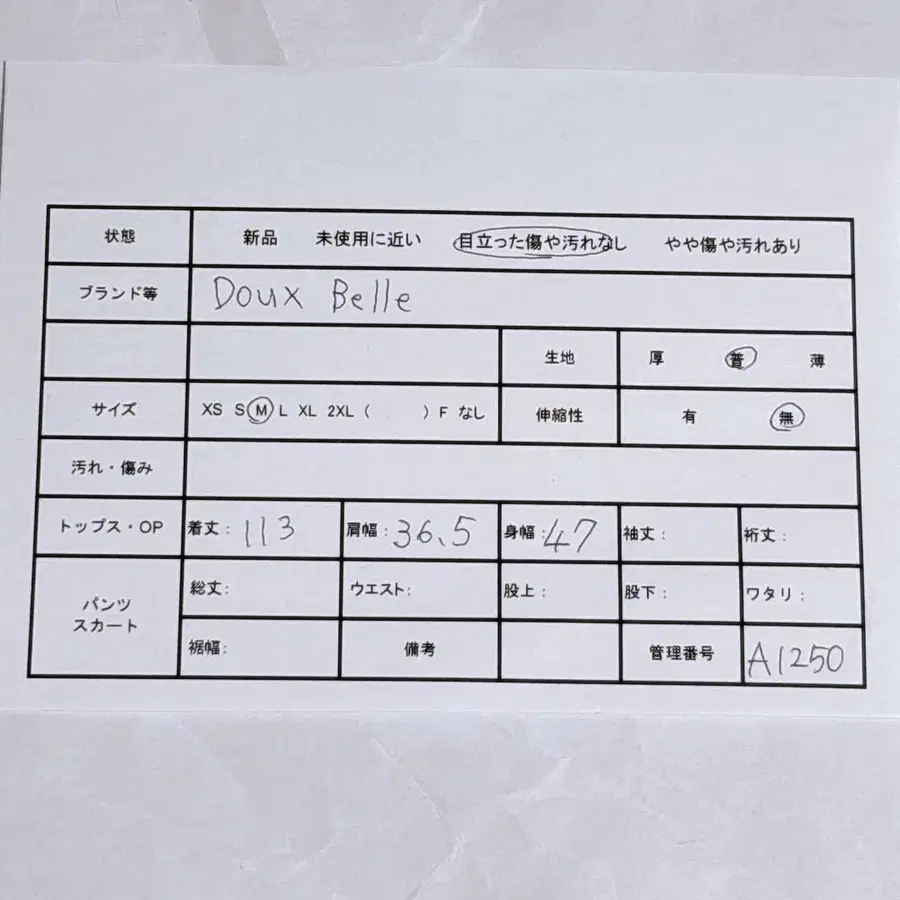 状態 新品 未使用に近い 目立った傷や汚れなし やや傷や汚れあり
ブランド等 Doux Belle
生地 厚 普 薄
サイズ XS S M L XL 2XL ( ) F なし 伸縮性 有 無
汚れ・傷み
トップス・OP 着丈: 113 肩幅: 36.5 身幅: 47 袖丈: 裄丈:
パンツ スカート 総丈: ウエスト: 股上: 股下: ワタリ:
裾幅: 備考 管理番号 A1250